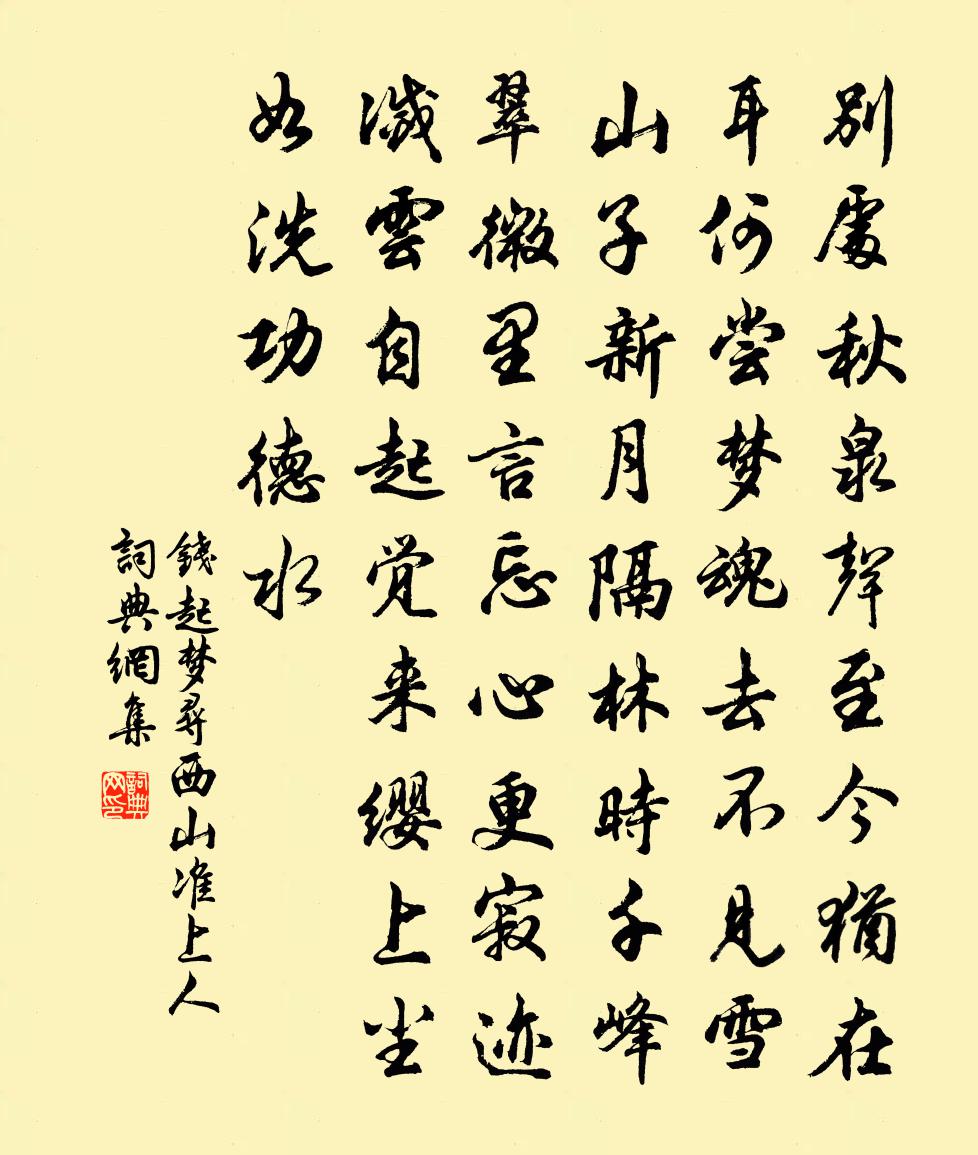 別處秋泉聲至今猶在
耳何尝梦魂去不見雪
山子新月隔林時千峰
翠微里言忘心更寂迹
滅雲自起觉来缨上尘
如洗功德水
錢起梦尋西山准上人
詞典網集
詞典网印